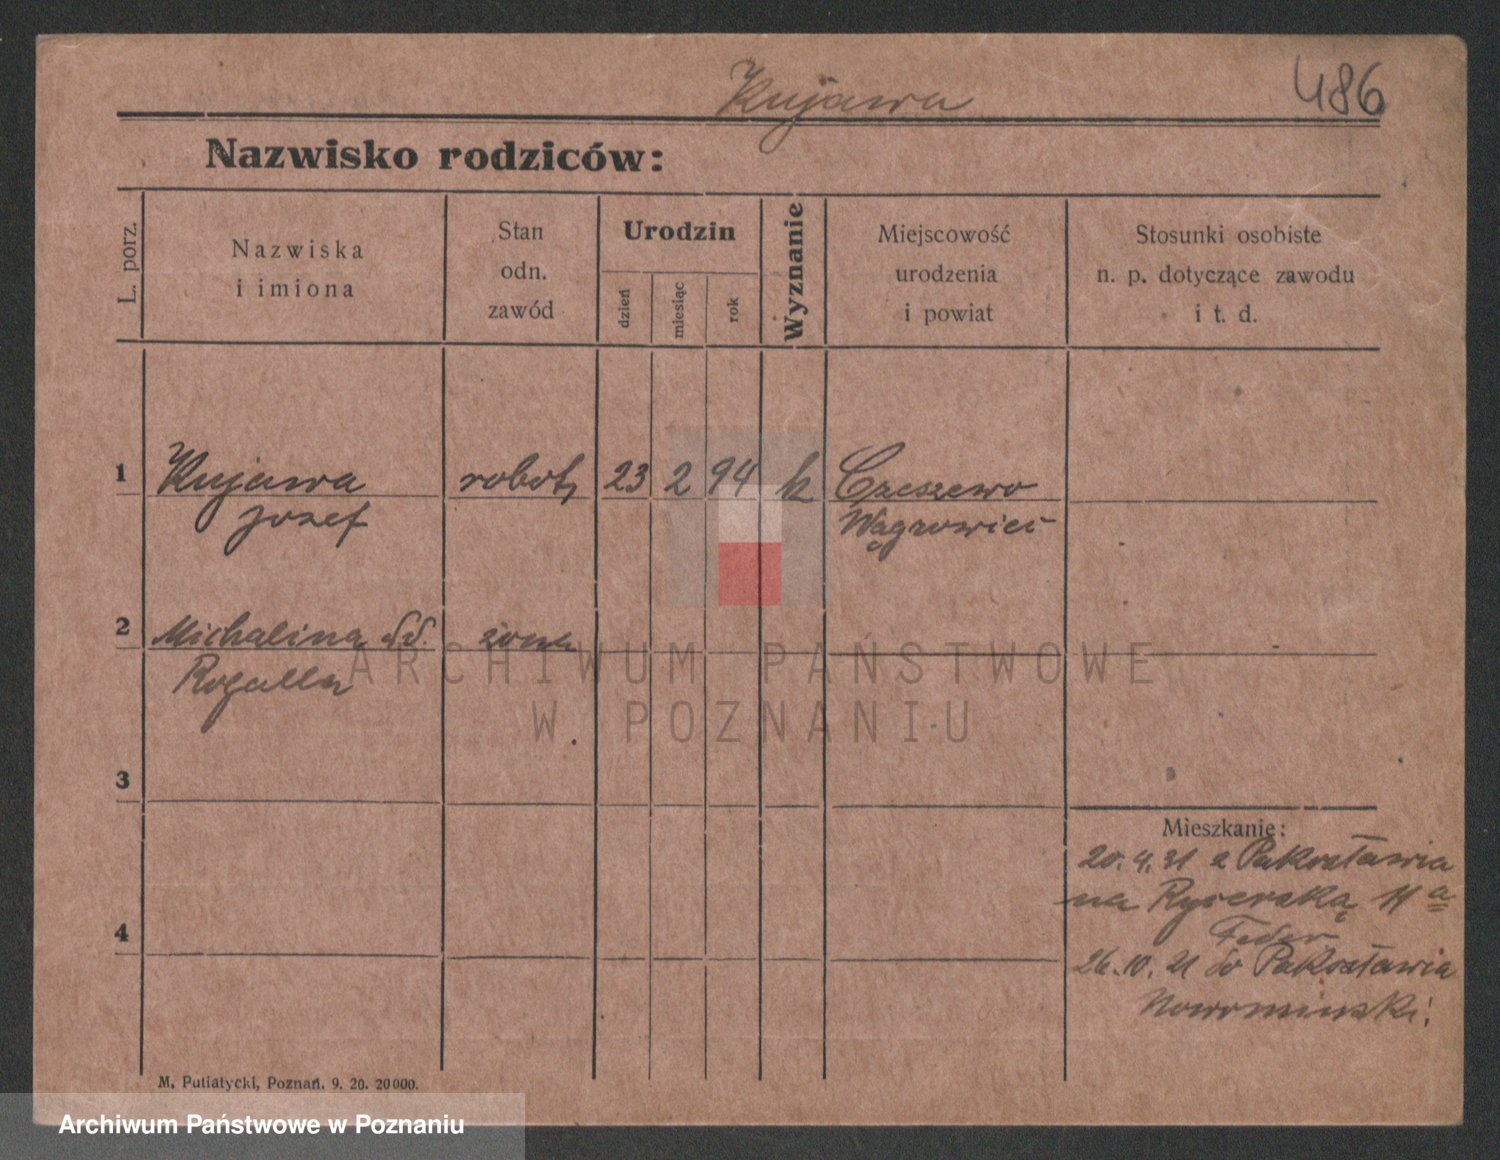 Kujawa
486
Nazwisko rodziców:
L. porz.
Nazwiska
i imiona
Stan
odn.
zawód
Urodzin
dzień
miesiąc
rok
Wyznanie
Miejscowość
urodzenia
i powiat
Stosunki osobiste
n. p. dotyczące zawodu
i t. d.
1
Kujawa robot. 23 2 94 k Czeszewo
Jozef Wągrowiec
2
Michalina żona
Rogalla
3
Mieszkanie:
20.4.21 z Pakosławia
na Rycerską 11 a
4
26.10.21 do Pakosławia
Nowotomiski
M. Putiatycki, Poznań. 9. 20. 20000.
ARCHIWUM PAŃSTWOWE
W POZNANIU
Archiwum Państwowe w Poznaniu